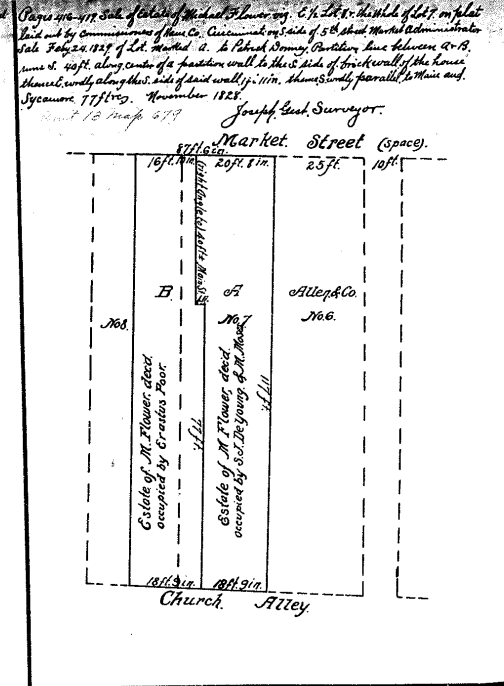 Pages 416-417. Sale of Estate of Michael Flower viz. E. pt. Lot 8 & the whole of Lot 7. on plat
laid out by commissioners of Ham. Co. Cincinnati on S. side of 5th street Market Administrator
Sale Feby 24. 1829 of Lot. Marked A. to Patrick Donney. Partition line between A & B.
runs S. 40ft. along center of a partition wall to the S side of brick wall of the house
thence E.wrdly along the S. side of said wall, 1ft. 11in. thence S.wrdly parallel to Main and
Sycamore 77ft
November 1828.
Joseph Gest. Surveyor.
Market. Street (Space).
87ft. 6in.
16ft. 10in. 20ft. 8in. 25ft. 10ft.
B A Allen & Co.
No 8. No. 7 No. 6.
Estate of M. Flower dec'd.
occupied by Erastus Poor.
77ft.
Estate of M. Flower, dec'd.
occupied by S.J. De Young. & M. Moses
117ft.
18ft. 9in. 18ft. 9in.
Church. Alley.